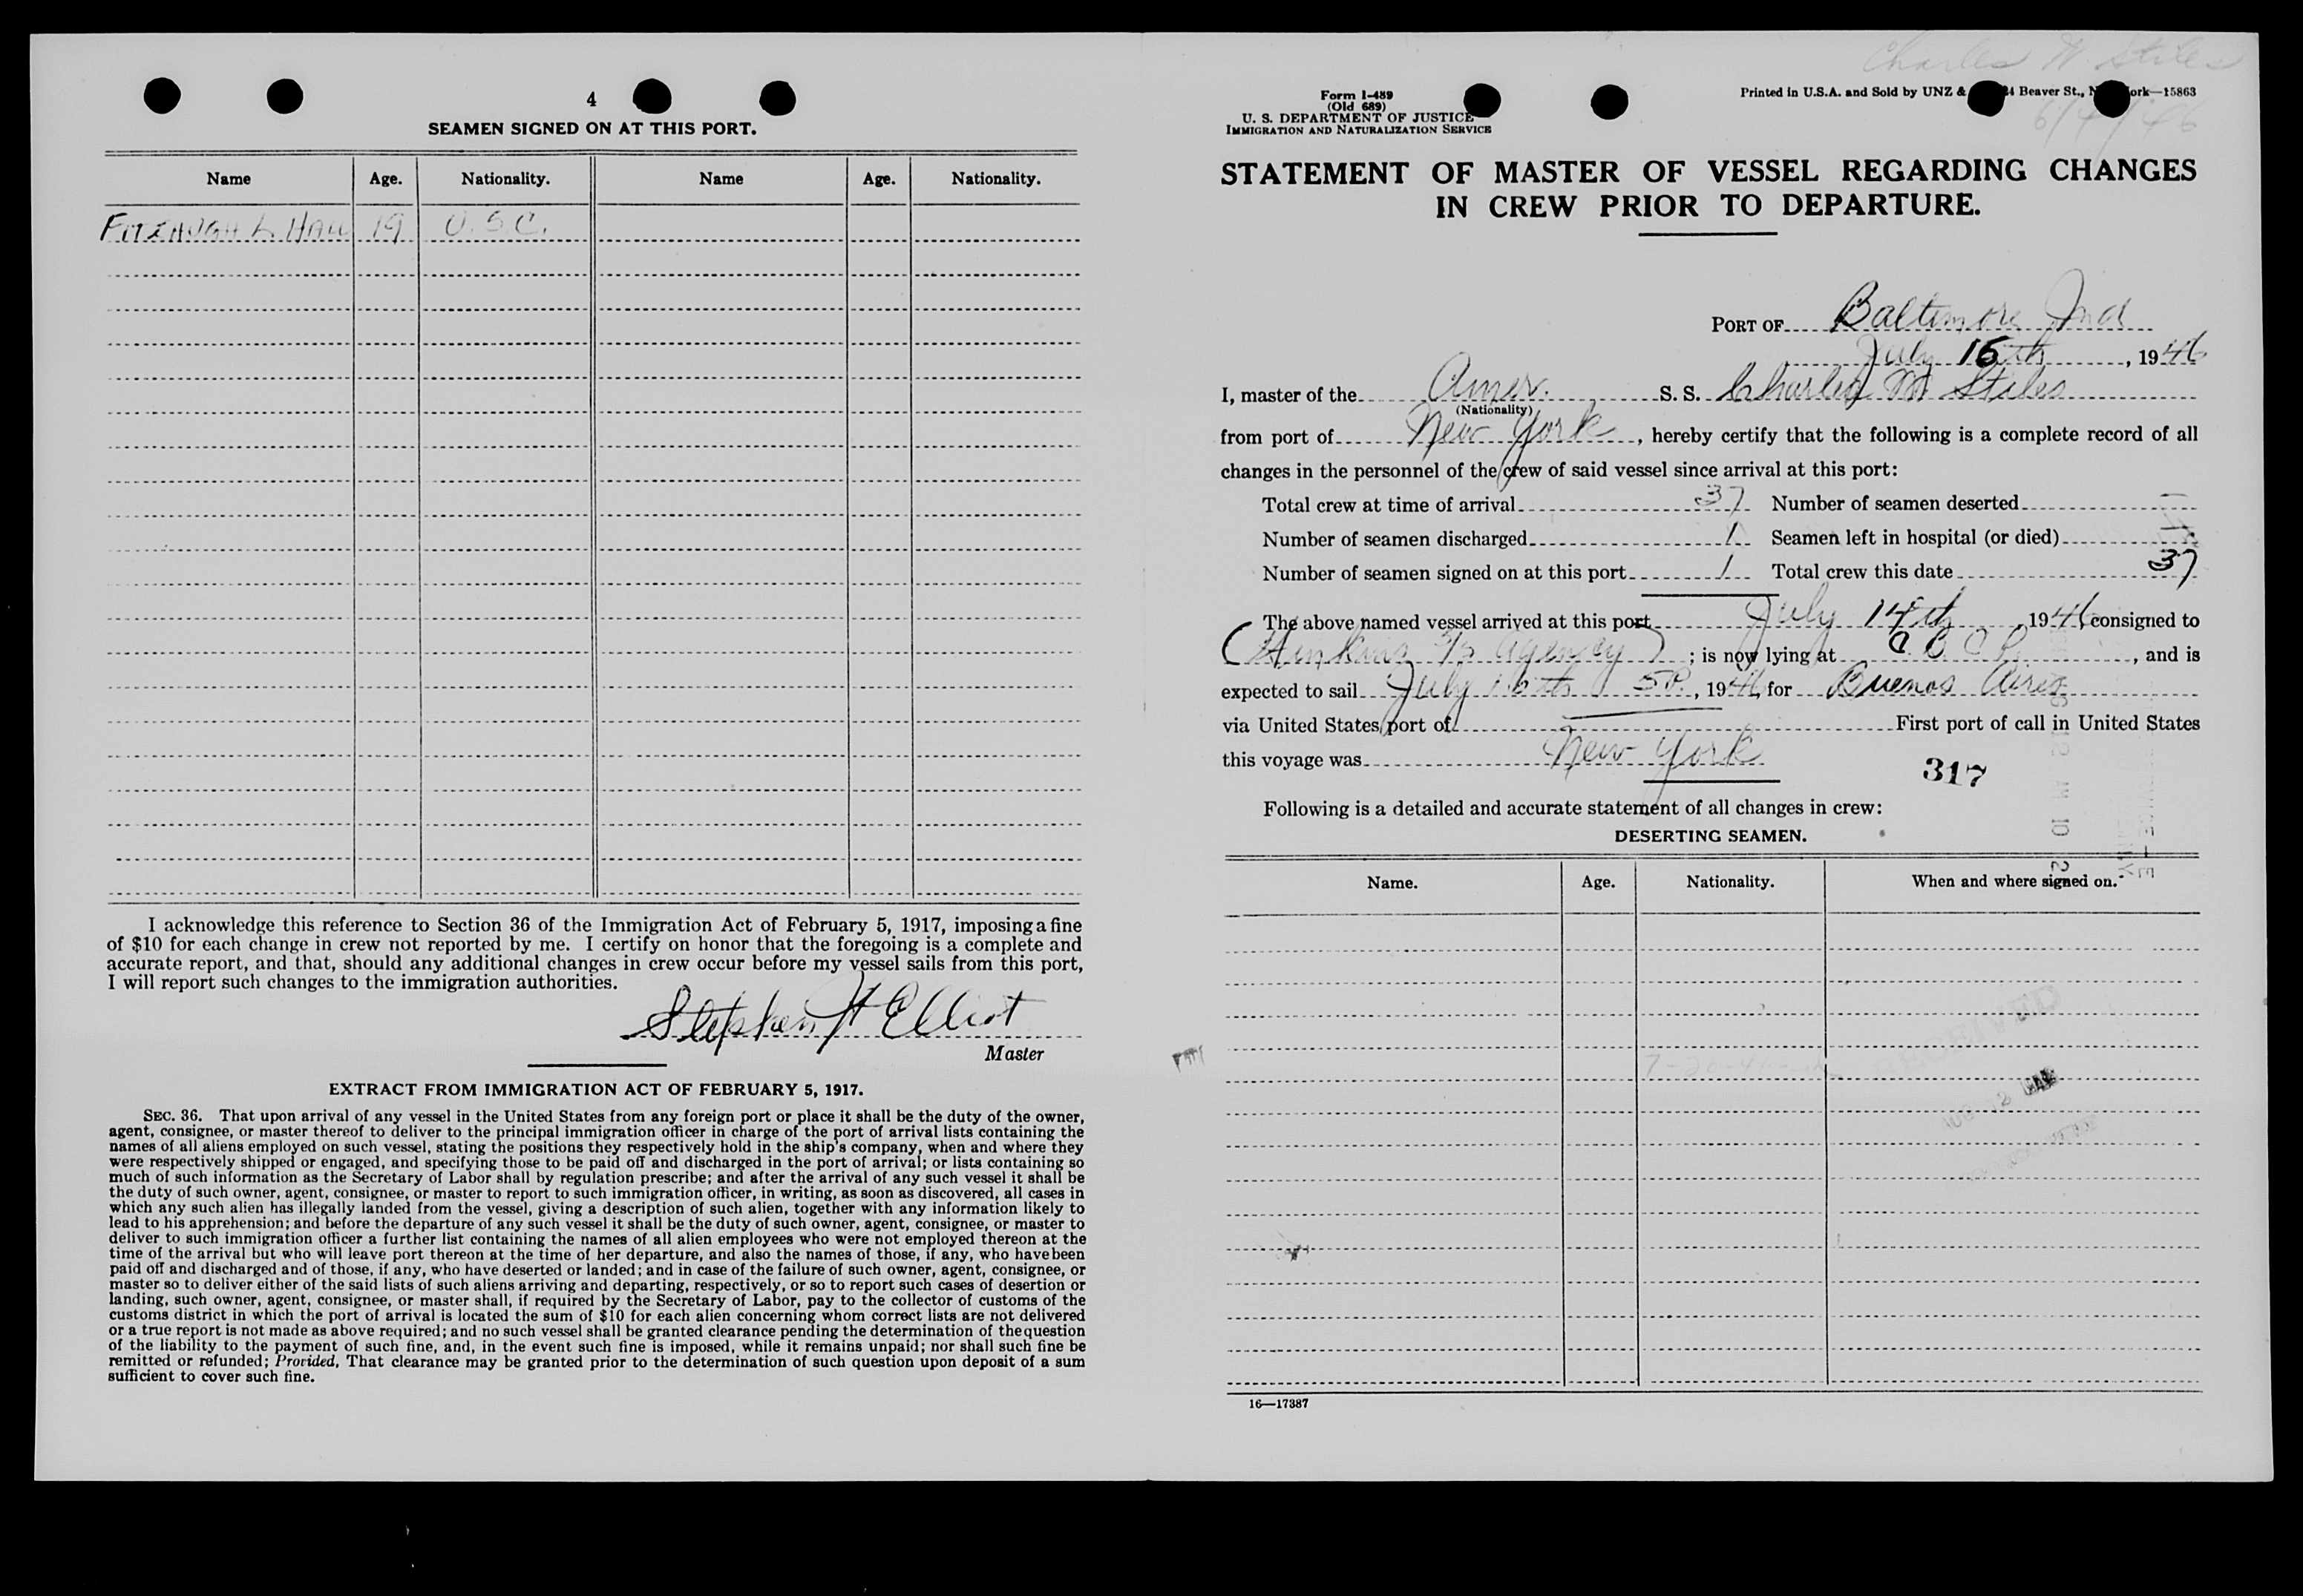 4
SEAMEN SIGNED ON AT THIS PORT.
Name Age. Nationality. Name Age. Nationality.
FITZHUGH L HALL 19 U.S.C.
I acknowledge this reference to Section 36 of the Immigration Act of February 5, 1917, imposing a fine
of $10 for each change in crew not reported by me. I certify on honor that the foregoing is a complete and
accurate report, and that, should any additional changes in crew occur before my vessel sails from this port,
I will report such changes to the immigration authorities.
Stephen H Elliot
Master
EXTRACT FROM IMMIGRATION ACT OF FEBRUARY 5, 1917.
SEC. 36. That upon arrival of any vessel in the United States from any foreign port or place it shall be the duty of the owner,
agent, consignee, or master thereof to deliver to the principal immigration officer in charge of the port of arrival lists containing the
names of all aliens employed on such vessel, stating the positions they respectively hold in the ship's company, when and where they
were respectively shipped or engaged, and specifying those to be paid off and discharged in the port of arrival; or lists containing so
much of such information as the Secretary of Labor shall by regulation prescribe; and after the arrival of any such vessel it shall be
the duty of such owner, agent, consignee, or master to report to such immigration officer, in writing, as soon as discovered, all cases in
which any such alien has illegally landed from the vessel, giving a description of such alien, together with any information likely to
lead to his apprehension; and before the departure of any such vessel it shall be the duty of such owner, agent, consignee, or master to
deliver to such immigration officer a further list containing the names of all alien employees who were not employed thereon at the
time of the arrival but who will leave port thereon at the time of her departure, and also the names of those, if any, who have been
paid off and discharged and of those, if any, who have deserted or landed; and in case of the failure of such owner, agent, consignee, or
master so to deliver either of the said lists of such aliens arriving and departing, respectively, or so to report such cases of desertion or
landing, such owner, agent, consignee, or master shall, if required by the Secretary of Labor, pay to the collector of customs of the
customs district in which the port of arrival is located the sum of $10 for each alien concerning whom correct lists are not delivered
or a true report is not made as above required; and no such vessel shall be granted clearance pending the determination of the question
of the liability to the payment of such fine, and, in the event such fine is imposed, while it remains unpaid; nor shall such fine be
remitted or refunded; Provided, That clearance may be granted prior to the determination of such question upon deposit of a sum
sufficient to cover such fine.
Charles W Stiles
Form I-489
(Old 689)
U. S. DEPARTMENT OF JUSTICE
IMMIGRATION AND NATURALIZATION SERVICE
Printed in U.S.A. and Sold by UNZ & Beaver St., ork—15863
STATEMENT OF MASTER OF VESSEL REGARDING CHANGES
IN CREW PRIOR TO DEPARTURE.
PORT OF Baltimore Md
July 15th, 1946
I, master of the Amer. S. S. Charles W Stiles
(Nationality)
from port of New York, hereby certify that the following is a complete record of all
changes in the personnel of the crew of said vessel since arrival at this port:
Total crew at time of arrival 37 Number of seamen deserted
Number of seamen discharged 1 Seamen left in hospital (or died)
Number of seamen signed on at this port 1 Total crew this date 37
The above named vessel arrived at this port July 14th, 1946, consigned to
S/S Agency ; is now lying at , and is
expected to sail July 5P, 1946, for Buenos Aires
via United States port of First port of call in United States
this voyage was New York
317
Following is a detailed and accurate statement of all changes in crew:
DESERTING SEAMEN.
Name. Age. Nationality. When and where signed on.
RECEIVED
16—17387